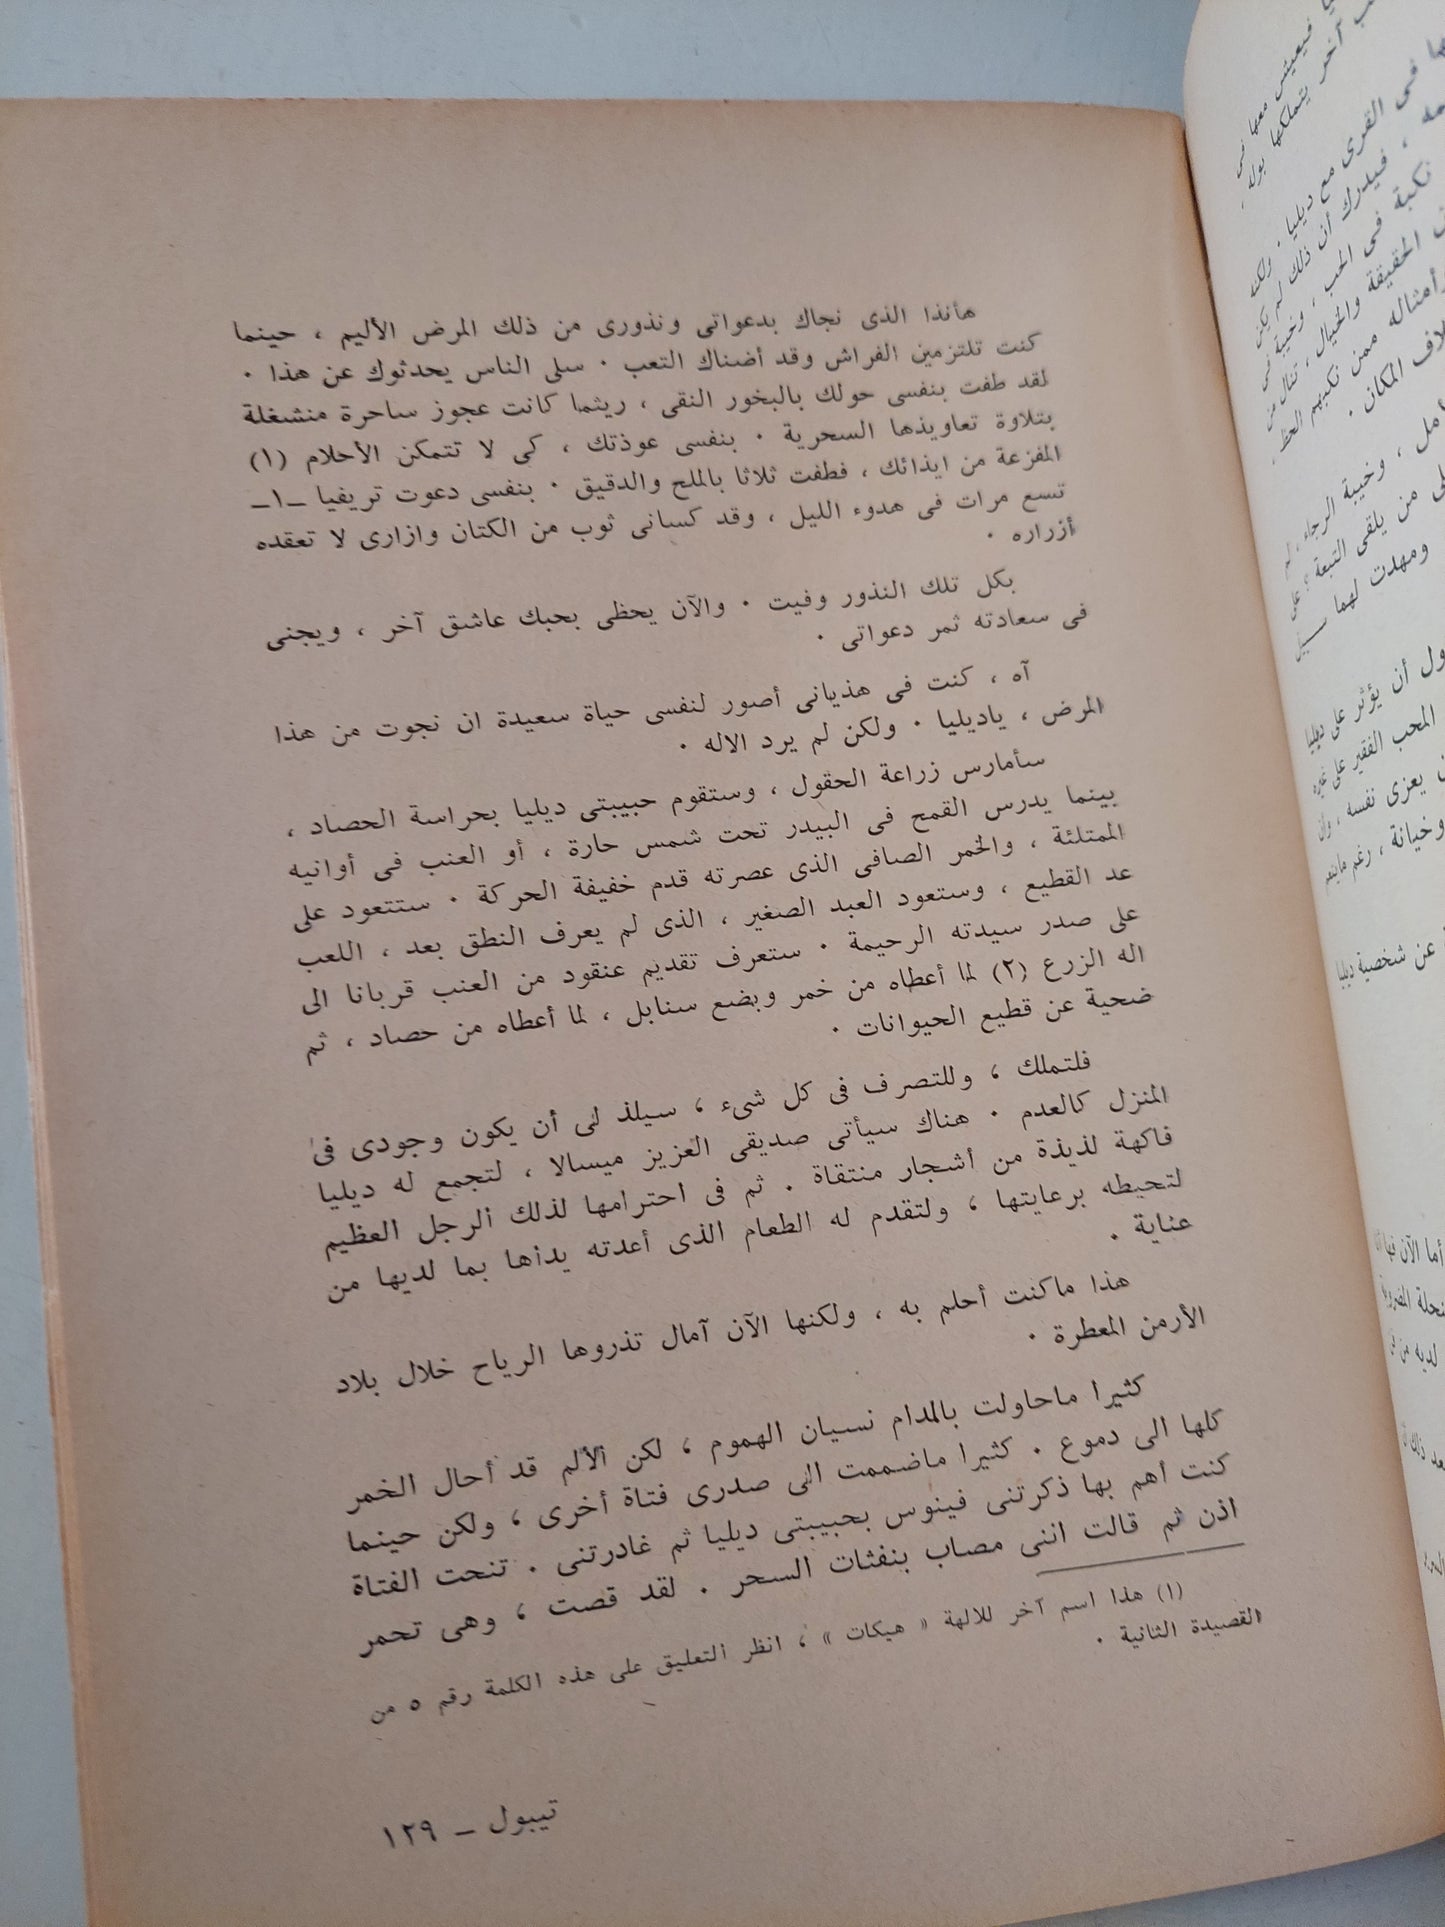 هأنذا الذى نجاك بدعواتى ونذورى من ذلك المرض الأليم ، حينما
كنت تلتزمين الفراش وقد أضناك التعب . سلى الناس يحدثوك عن هذا .
لقد طفت بنفسى حولك بالبخور النقى ، ريثما كانت عجوز ساحرة منشغلة
بتلاوة تعاويذها السحرية . بنفسى عوذتك ، كى لا تتمكن الأحلام (١)
المفزعة من ايذائك ، فطفت ثلاثا بالملح والدقيق . بنفسى دعوت تريفيا ــ١ــ
تسع مرات فى هدوء الليل ، وقد كسانى ثوب من الكتان وازارى لا تعقده
أزراره .
بكل تلك النذور وفيت . والآن يحظى بحبك عاشق آخر ، ويجنى
فى سعادته ثمر دعواتى .
آه ، كنت فى هذيانى أصور لنفسى حياة سعيدة ان نجوت من هذا
المرض ، ياديليا . ولكن لم يرد الاله .
سأمارس زراعة الحقول ، وستقوم حبيبتى ديليا بحراسة الحصاد ،
بينما يدرس القمح فى البيدر تحت شمس حارة ، أو العنب فى أوانيه
الممتلئة ، والخمر الصافى الذى عصرته قدم خفيفة الحركة . ستتعود على
عد القطيع ، وستعود العبد الصغير ، الذى لم يعرف النطق بعد ، اللعب
على صدر سيدته الرحيمة . ستعرف تقديم عنقود من العنب قربانا الى
اله الزرع (٢) لما أعطاه من خمر وبضع سنابل ، لما أعطاه من حصاد ، ثم
ضحية عن قطيع الحيوانات .
فلتملك ، وللتصرف فى كل شىء ، سيلذ لى أن يكون وجودى فى
المنزل كالعدم . هناك سيأتى صديقى العزيز ميسالا ، لتجمع له ديليا
فاكهة لذيذة من أشجار منتقاة . ثم فى احترامها لذلك الرجل العظيم
لتحيطه برعايتها ، ولتقدم له الطعام الذى أعدته يداها بما لديها من
عناية .
هذا ماكنت أحلم به ، ولكنها الآن آمال تذروها الرياح خلال بلاد
الأرمن المعطرة .
كثيرا ماحاولت بالمدام نسيان الهموم ، لكن الألم قد أحال الخمر
كلها الى دموع . كثيرا ماضممت الى صدرى فتاة أخرى ، ولكن حينما
كنت أهم بها ذكرتنى فينوس بحبيبتى ديليا ثم غادرتنى . تنحت الفتاة
اذن ثم قالت اننى مصاب بنفثات السحر . لقد قصت ، وهى تحمر
(١) هذا اسم آخر للالهة « هيكات » ، انظر التعليق على هذه الكلمة رقم ٥ من
القصيدة الثانية .
تيبول ــ ١٢٩
فيعيش معها فى
آخر يتملكها بوله ،
فى القرى مع ديليا . ولكنه
، فيدرك أن ذلك لم يكن
نكبة فى الحب ، وخيبة فى
الحقيقة والخيال ، تنال من
وأمثاله ممن نكبهم الحظ ،
المكان .
، وخيبة الرجاء ، لم
من يلقى التبعة ؟ على
ومهدت لهما سبيل
أن يؤثر على ديليا
المحب الفقير على غيره
يعزى نفسه ، وأن
وخيانة ، رغم
عن شخصية ديليا
أما الآن
لديه من